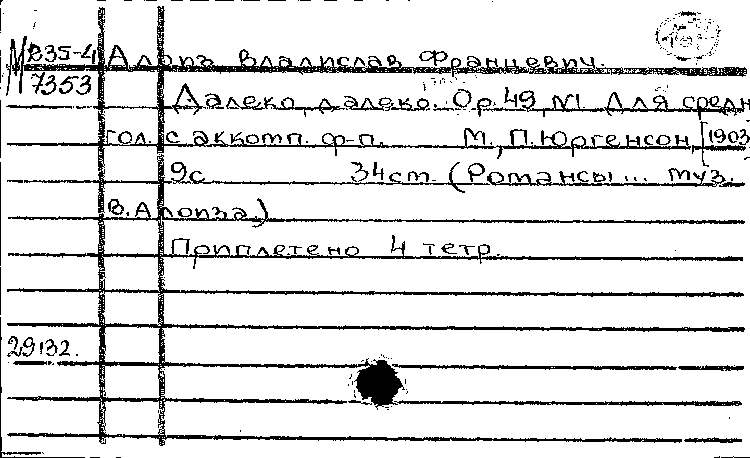 М 235-4
7353
Алоиз Владислав Францевич.
Далеко, далеко. Ор. 49, №1 Для средн
гол. с аккомп. ф-п. М., П. Юргенсон, [1903
9с 34см. (Романсы... муз.
В. Алоиза.)
Приплетено 4 тетр.
29132.